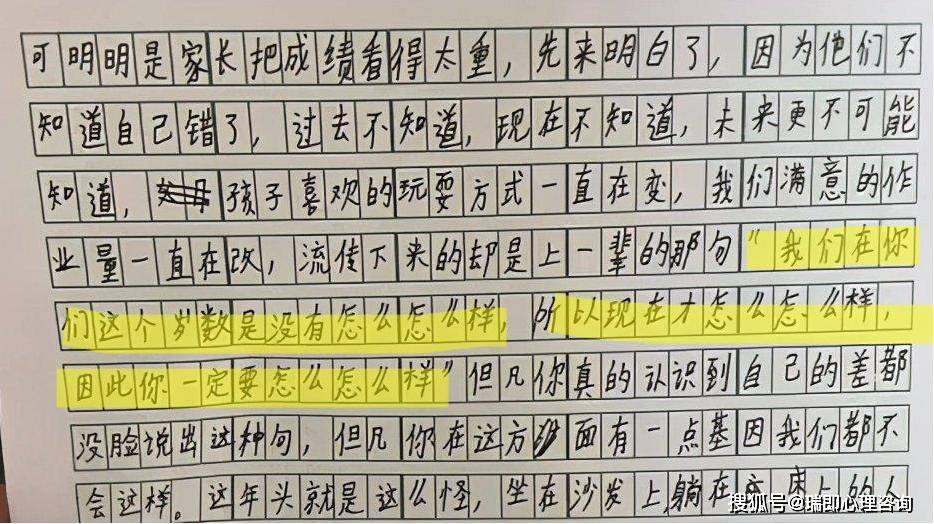 可明明是家长把成绩看得太重，先来明白了，因为他们不
知道自己错了，过去不知道，现在不知道，未来更不可能
知道，孩子喜欢的玩耍方式一直在变，我们满意的作
业量一直在改，流传下来的却是上一辈的那句“我们在你
们这个岁数是没有怎么怎么样，所以现在才怎么怎么样，
因此你一定要怎么怎么样”但凡你真的认识到自己的差都
没脸说出这种句，但凡你在这方面有一点基因我们都不
会这样。这年头就是这么怪，坐在沙发上，躺在床上的人
搜狐号@瑞即心理咨询